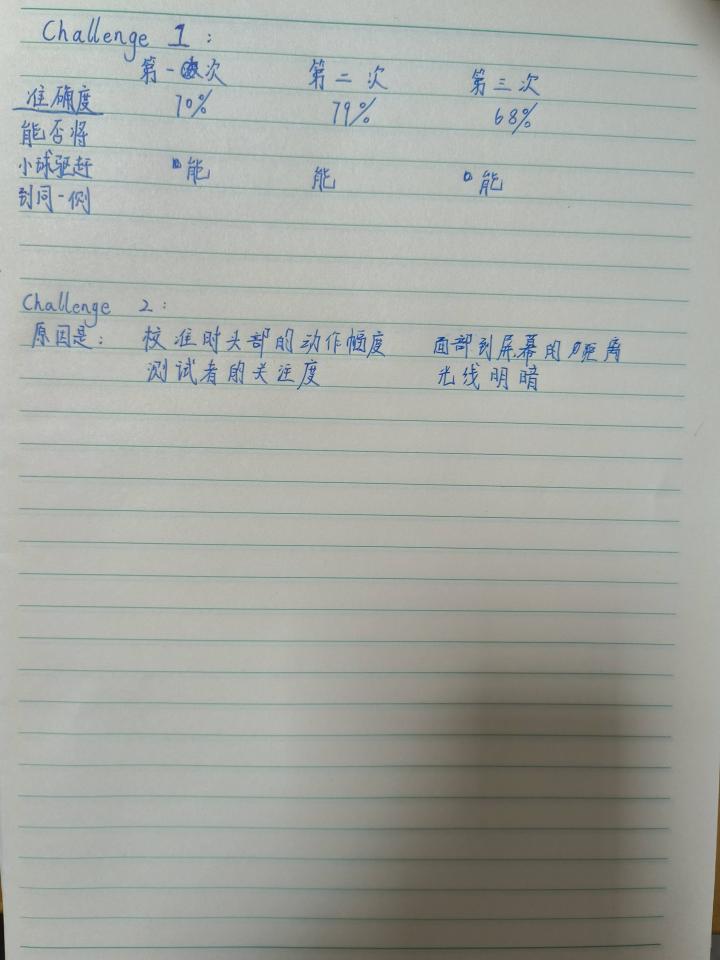 Challenge 1:
第一次 第二次 第三次
准确度 70% 79% 68%
能否将
小球驱赶 能 能 能
到同一侧
Challenge 2:
原因是: 校准时头部的动作幅度 面部到屏幕的距离
测试者的关注度 光线明暗